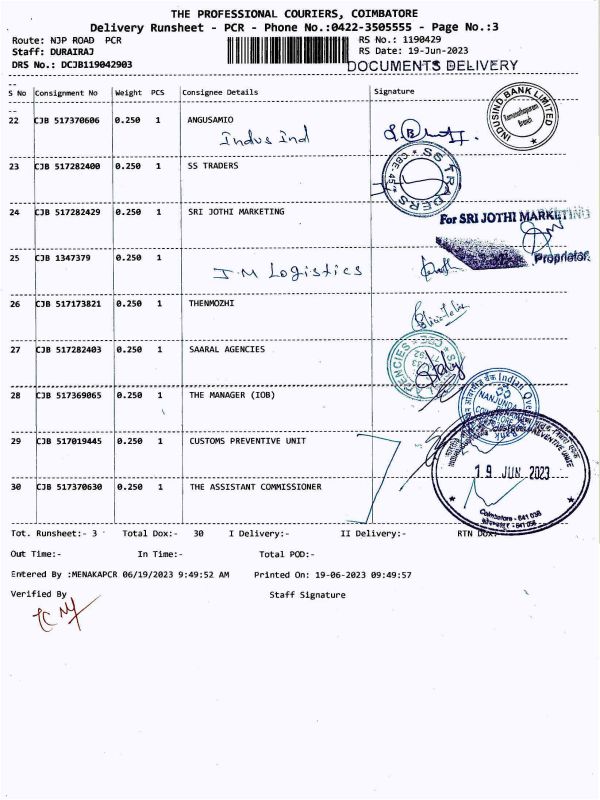 THE PROFESSIONAL COURIERS, COIMBATORE
Delivery Runsheet - PCR - Phone No.:0422-3505555 - Page No.:3
Route: NJP ROAD PCR RS No.: 1190429
Staff: DURAIRAJ RS Date: 19-Jun-2023
DRS No.: DCJB119042903 DOCUMENTS DELIVERY
S No Consignment No Weight PCS Consignee Details Signature
22 CJB 517370606 0.250 1 ANGUSAMIO
Indus Ind
INDUSIND BANK LIMITED
Branch
23 CJB 517282400 0.250 1 SS TRADERS
SS TRADERS
CBE-45
24 CJB 517282429 0.250 1 SRI JOTHI MARKETING
For SRI JOTHI MARKETING
Proprietor
25 CJB 1347379 0.250 1
J.M Logistics
26 CJB 517173821 0.250 1 THENMOZHI
27 CJB 517282403 0.250 1 SAARAL AGENCIES
28 CJB 517369065 0.250 1 THE MANAGER (IOB)
29 CJB 517019445 0.250 1 CUSTOMS PREVENTIVE UNIT
19 JUN 2023
30 CJB 517370630 0.250 1 THE ASSISTANT COMMISSIONER
Tot. Runsheet:- 3 Total Dox:- 30 I Delivery:- II Delivery:- RTN DOX:-
Out Time:- In Time:- Total POD:-
Entered By :MENAKAPCR 06/19/2023 9:49:52 AM Printed On: 19-06-2023 09:49:57
Verified By Staff Signature